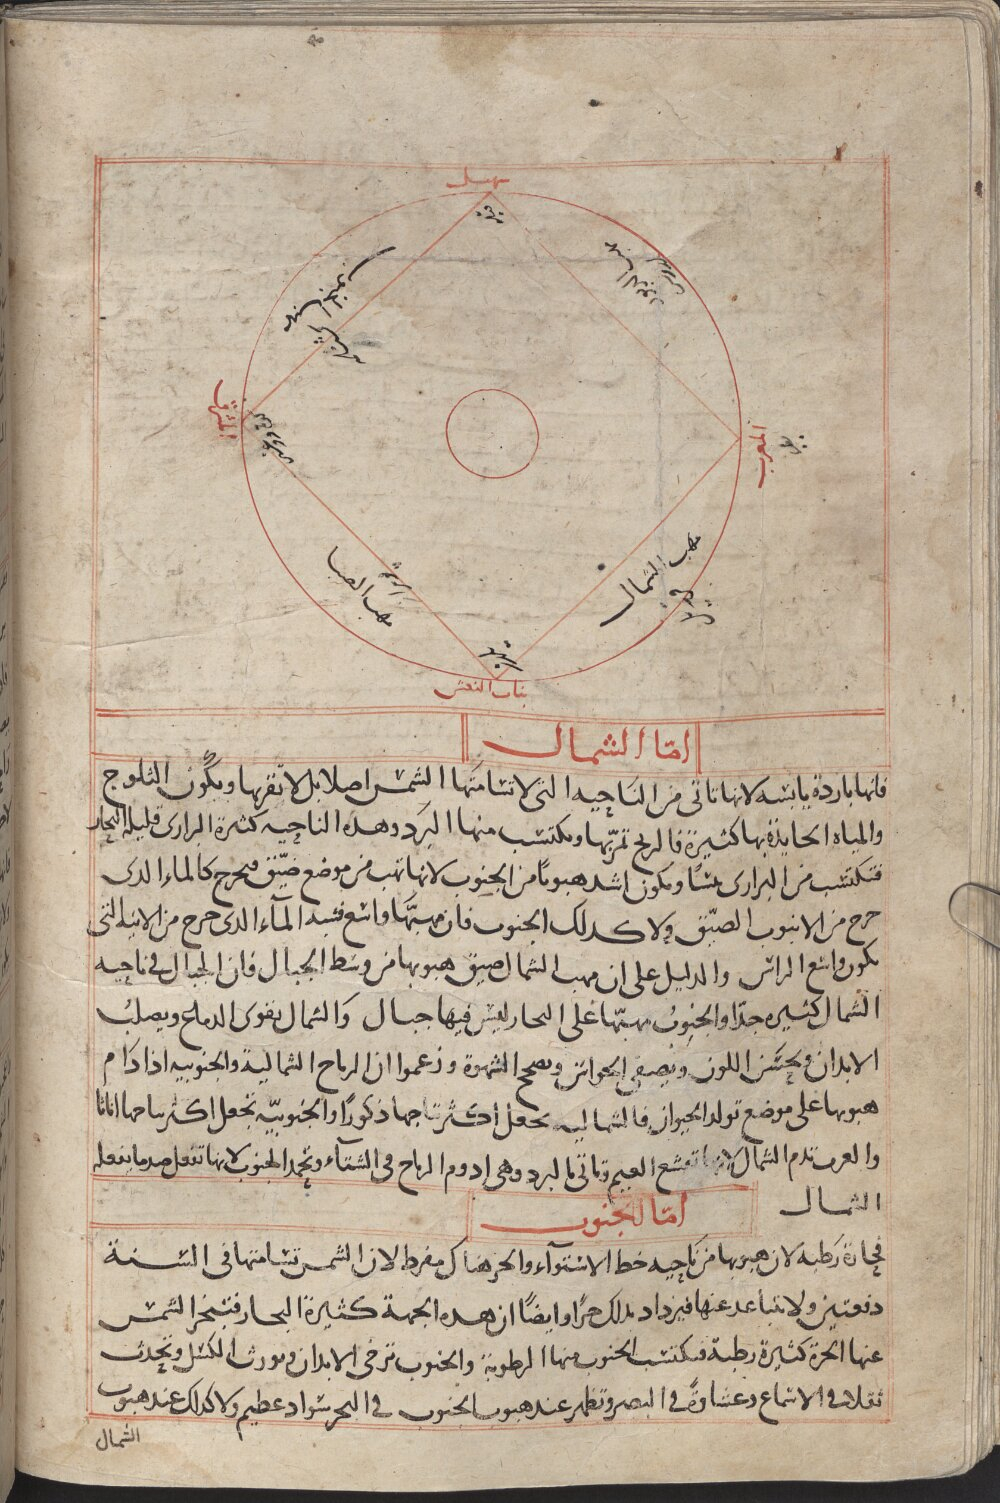 سهيل
المغرب
المشرق
مهب الشمال
مهب الصبا
بنات النعش
امّا الشمال
فانها باردة يابسه لانها تاتى من الناحيه التى لا تسامتها الشمس اصلا بل لا تقربها ويكون الثلوج
والمياه الجامدة بها كثيرة فالريح تمر بها ويكتسب منها البرد وهذه الناحيه كثيرة البرارى قليلة البحار
فتكتسب من البرارى يبسًا ويكون اشد هبوبًا من الجنوب لانها تهب من موضع ضيّق فيخرج كالماء الذى
خرج من الانبوب الضيّق ولا كذلك الجنوب فان مهبّها واسع فشبه المآء الذى خرج من الانيه التى
يكون واسع الراس والدليل على ان مهب الشمال ضيق هبوبها من وسط الجبال فان الجبال فى ناحيه
الشمال كثيره جدّا والجنوبُ مهبّها على البحار ليس فيها جبال والشمال يقوى الدماغ ويصلبُ
الابدان ويحسّن اللون ويصفى الحواس ويصحح الشهوة وزعموا ان الرياح الشمالية والجنوبيه اذا دام
هبوبها على موضع تولد الحيوان فالشماليه يجعل اكثر نتاجها ذكورًا والجنوبيّه تجعل اكثر نتاجها اناثا
والعرب تذم الشمال لانها تقشع الغيم وتاتى بالبرد وهى ادوم الرياح فى الشتآء وتحمد الجنوب لانها تفعل ضد ما يفعله
الشمال
امّا الجنوب
فحارة رطبه لان هبوبها من ناحيه خط الاستوآء والحر هناك مفرط لان الشمس تسامتها فى السنة
دفعتين ولا تتباعد عنها فيزداد بذلك حرًا وايضًا ان هذه الجهة كثيرة البحار فتبخر الشمس
عنها ابخرة كثيرة رطبة فيكتسب الجنوب منها الرطوبة والجنوب ترخى الابدان ويورث الكسل وتحدث
ثقلا فى الاسماع وغشاوةً فى البصر وتظهر عند هبوب الجنوب فى البحر سواد عظيم ولا كذلك عند هبوب
الشمال